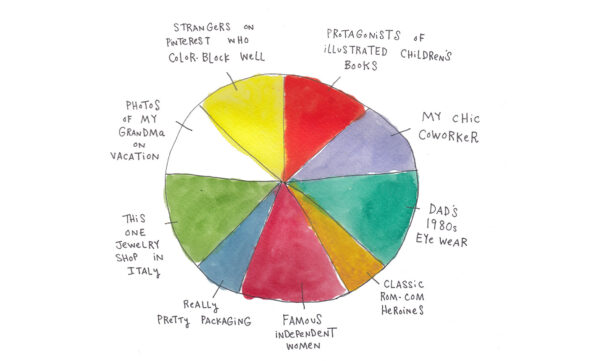 STRANGERS ON
PINTEREST WHO
COLOR-BLOCK WELL
PROTAGONISTS OF
ILLUSTRATED CHILDREN'S
BOOKS
MY CHIC
COWORKER
DAD'S
1980s
EYE WEAR
CLASSIC
ROM-COM
HEROINES
FAMOUS
INDEPENDENT
WOMEN
REALLY
PRETTY PACKAGING
THIS
ONE
JEWELRY
SHOP IN
ITALY
PHOTOS
OF MY
GRANDMA
ON
VACATION